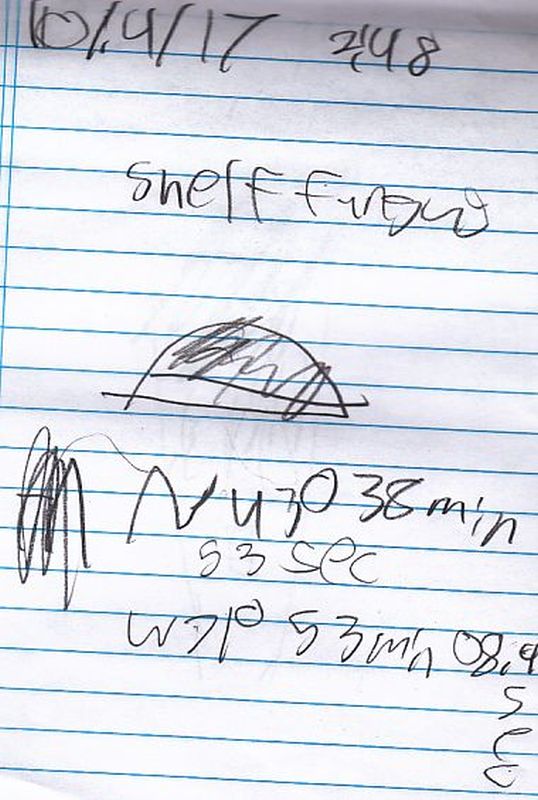 10/4/17 2:48
Shelf fungus
N 43° 38 min
53 sec
W 71° 53 min 08.4
s
e